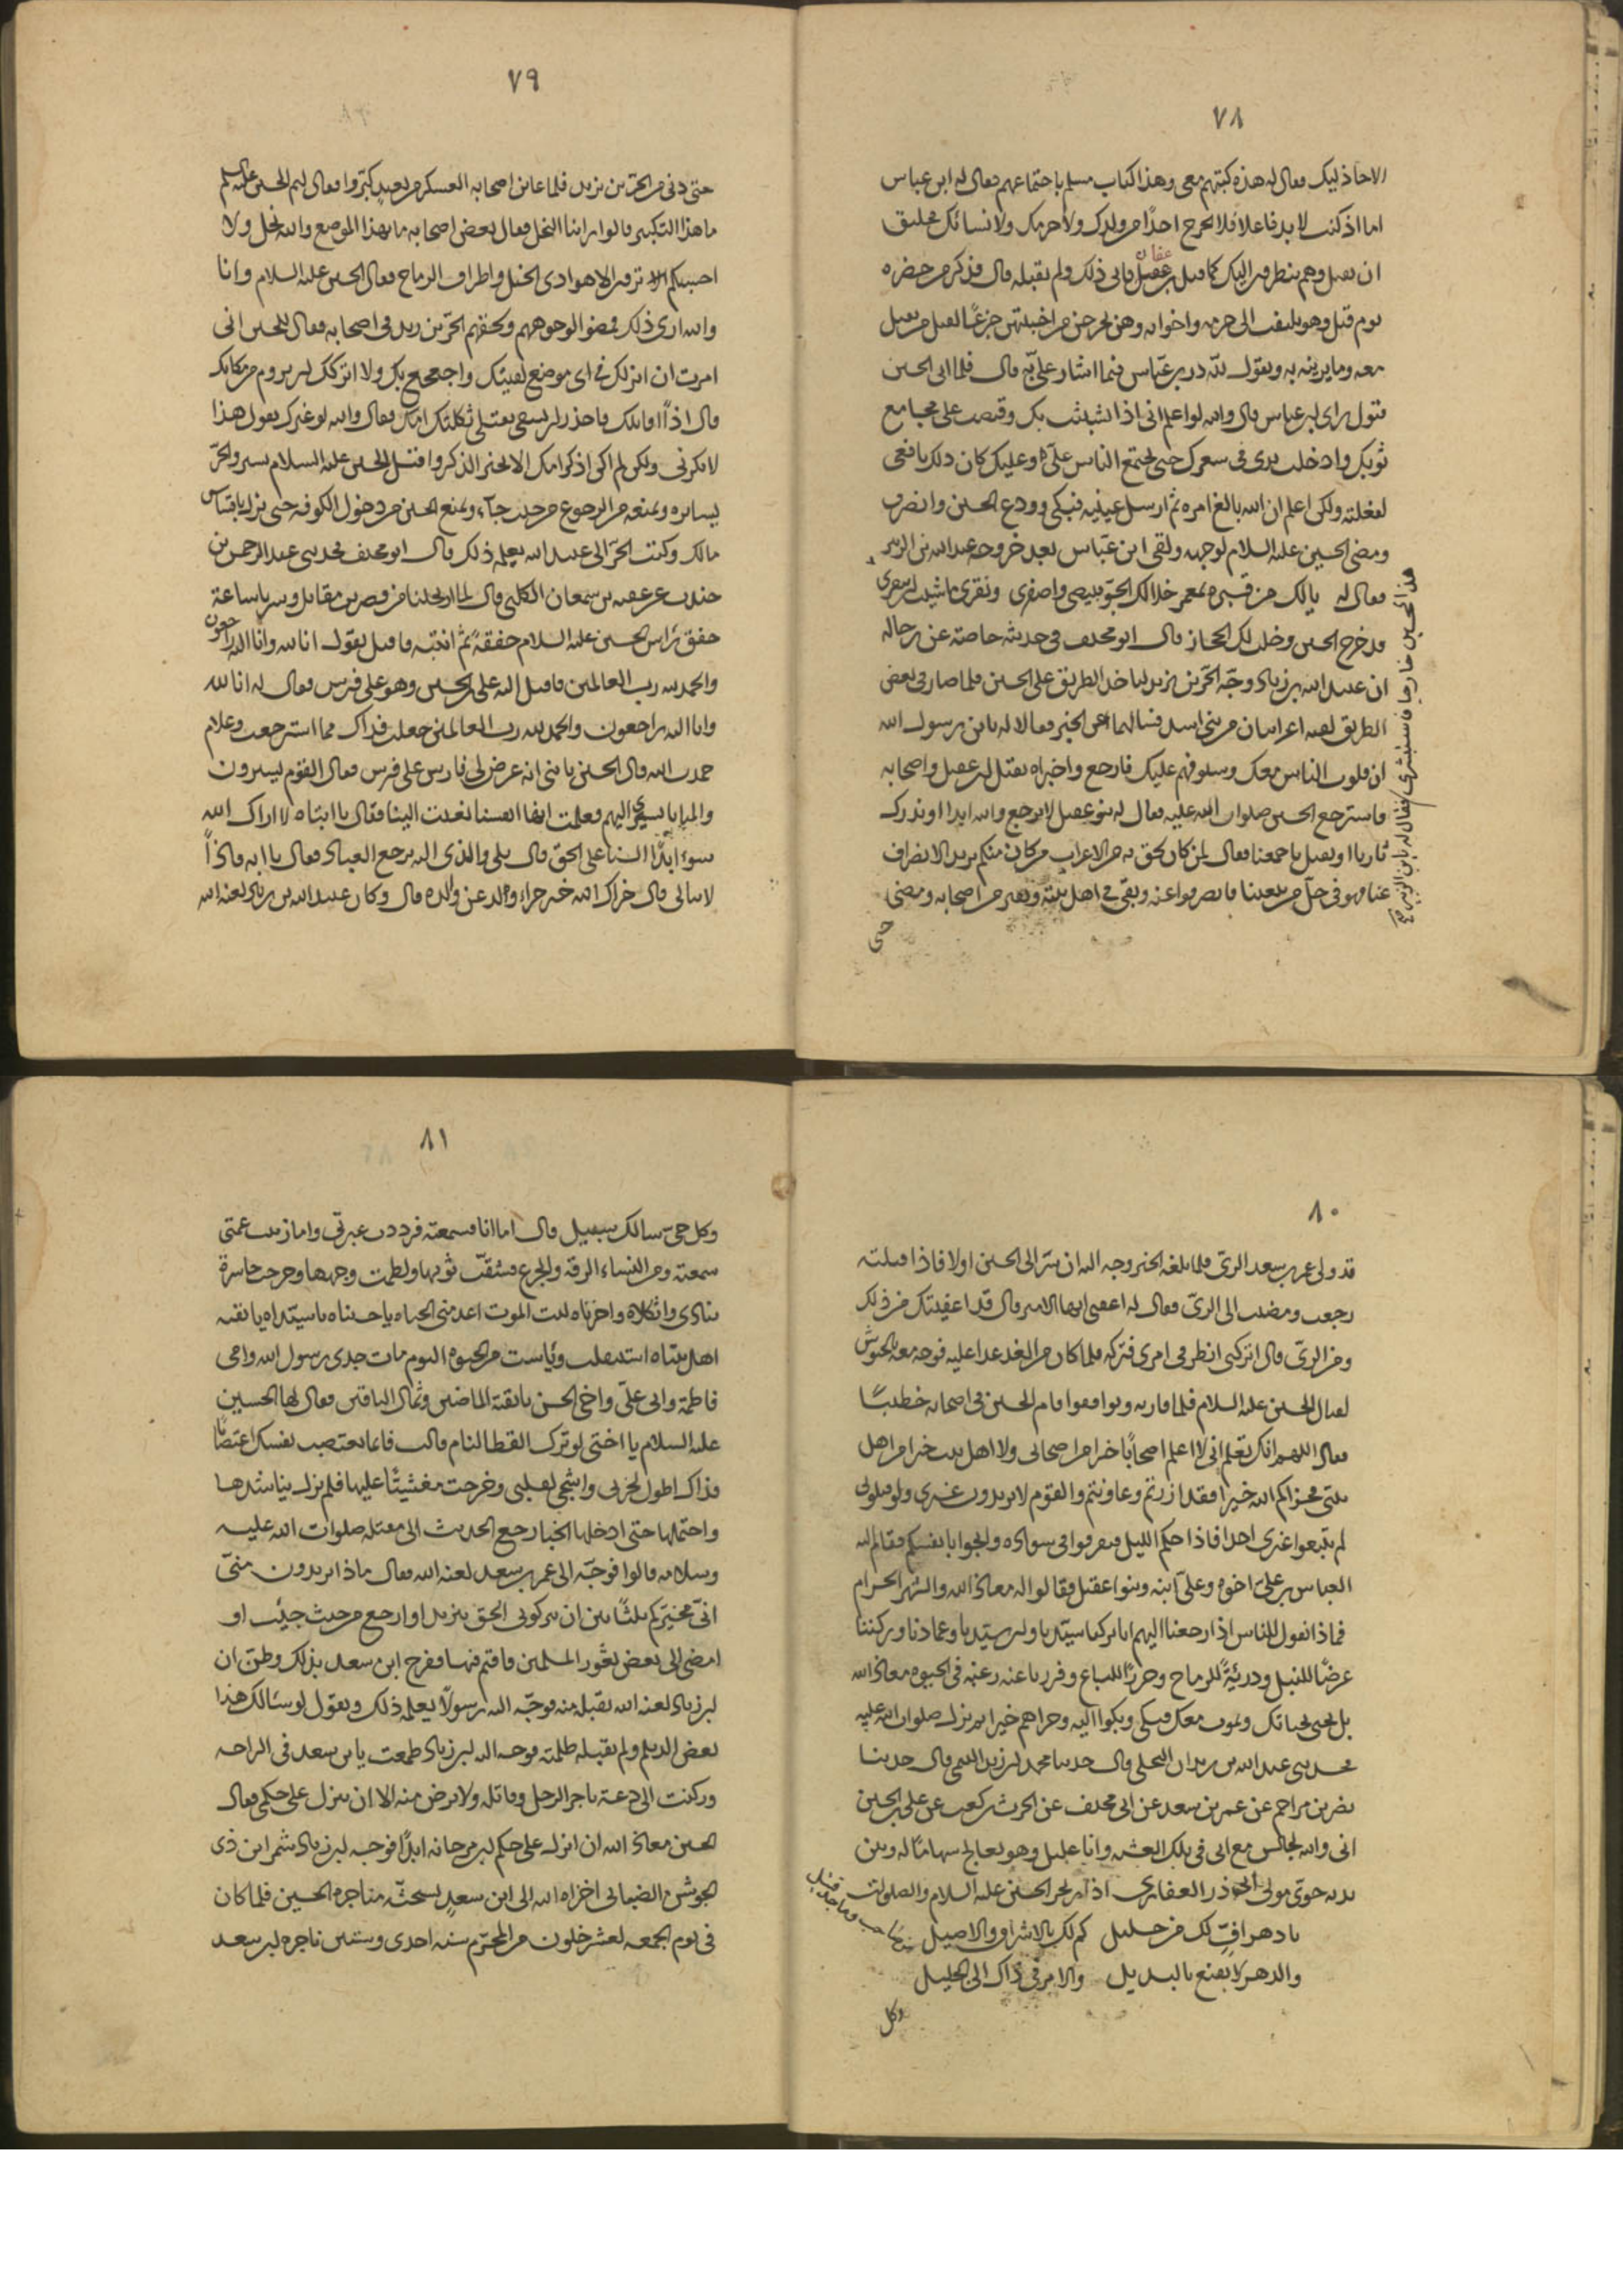 ٧٨
الاحاذ ليك فعال له هذه كتبهم معى وهذا كتاب مسلم باجتماعهم فعال له ابن عباس
اما اذ كنت لا بد فاعلا فلا تخرج احدًا من ولدك ولا حرمك ولا نسائك فخليق
ان تقتل وهم ينظرون اليك كما قتل بن عفان فابى ذلك ولم يقبله قال فذكر من حضره
يوم قتل وهو يلتفت الى حرمه واخوانه وهن يخرجن من اخبيتهن جزعًا لقتل من يقتل
معه وما يرينه به ويقول لله در بن عباس فيما اشار علىّ به قال فلما ابى الحسين
قبول راى ابن عباس قال والله لو اعلم انى اذا تشبثت بك وقبضت على مجامع
ثوبك وادخلت يدى فى شعرك حتى يجتمع الناس علىّ وعليك كان ذلك نافعى
لفعلته ولكن اعلم ان الله بالغ امره ثم ارسل عينيه فبكى وودع الحسين وانصرف
ومضى الحسين عليه السلام لوجهه ولقى ابن عباس بعد خروجه عبد الله بن الزبير
فقال له يا لك من قبره بمعمر خلا لك الجو فبيضى واصفرى ونقرى ما شئت ان تنقرى
هذا الحسين خارجا فاستبشرى فقال له بن الزبير
قد خرج الحسين وخلت لك الحجاز قال ابو مخنف فى حديثه خاصة عن رجاله
ان عبيد الله بن زياد وجّه الحرّ بن يزيد لياخذ الطريق على الحسين فلما صار فى بعض
الطريق لقيه اعرابيان من بنى اسد فسالهما عن الخبر فقالا له يا بن رسول الله
ان قلوب الناس معك وسيوفهم عليك فارجع واخبراه بقتل ابن عقيل واصحابه
فاسترجع الحسين صلوات الله عليه فقال له بنو عقيل لا نرجع والله ابدا او ندرك
ثارنا او نقتل باجمعنا فقال لمن كان لحق به من الاعراب من كان منكم يريد الانصراف
عنا فهو فى حلّ من بيعتنا فانصرفوا عنه وبقى فى اهل بيته ونفر من اصحابه ومضى
حتى
٧٩
حتى دنى من الحرّ بن يزيد فلما عاين اصحابه العسكر من بعيد كبّروا فعال لهم الحسين عليه السلم
ما هذا التكبير قالوا راينا النخل فعال بعض اصحابه ما بهذا الموضع والله نخل ولا
احسبكم ترون الا هوادى الخيل واطراف الرماح فعال الحسين عليه السلام وانا
والله ارى ذلك فمضوا لوجوههم ولحقهم الحرّ بن يزيد فى اصحابه فعال للحسين انى
امرت ان انزلك فى اى موضع لقيتك واجعجع بك ولا اتركك ان تروم من مكانك
قال اذًا اقاتلك فاحذر ان تشقى بقتلى ثكلتك امك فعال والله لو غيرك يقول هذا
لا نكرنى ولكن لم اكن اذكر امك الا بخير الذكر واقبل الحسين عليه السلام يسير والحرّ
يسايره ويمنعه من الرجوع من حيث جآء ويمنع الحسين من دخول الكوفه حتى نزل باقساس
مالك وكتب الحرّ الى عبيد الله يعلمه ذلك قال ابو مخنف فحدثنى عبد الرحمن بن
جندب عن عقبه بن سمعان الكلبى قال لما ارتحلنا من قصر بن مقاتل وسرنا ساعة
خفق راس الحسين عليه السلام خفقةً ثم انتبه فاقبل يقول انا لله وانا اليه راجعون
والحمد لله رب العالمين فاقبل اليه على بن الحسين وهو على فرس فعال له انا لله
وانا اليه راجعون والحمد لله رب العالمين جعلت فداك مما استرجعت وعلام
حمدت الله قال الحسين يا بنى انه عرض لى فارس على فرس فعال القوم يسيرون
والمنايا تسرى اليهم فعلمت انها انفسنا نعيت الينا فقال يا ابتاه لا اراك الله
سوءً ابدًا السنا على الحق قال بلى والذى اليه يرجع العباد فعال يا ابه فاذًا
لا نبالى قال جزاك الله خير جزاء ولد عن والده قال وكان عبيد الله بن زياد لعنه الله
٨٠
قد ولى عمر بن سعد الرىّ فلما بلغه الخبر وجه اليه ان سر الى الحسين اولا فاذا قتلته
رجعت ومضيت الى الرىّ فعال له اعفنى ايها الامير قال قد اعفيتك من ذلك
ومن الرىّ قال اتركنى انظر فى امرى فتركه فلما كان من الغد غدا عليه فوجه معه الجيوش
لقتال الحسين عليه السلام فلما قاربه وتوافقوا قام الحسين فى اصحابه خطيبًا
فعال اللهم انك تعلم انى لا اعلم اصحابًا خيرا من اصحابى ولا اهل بيت خيرا من اهل
بيتى فجزاكم الله خيرا فقد ازرتم وعاونتم والقوم لا يريدون غيرى ولو قتلونى
لم يتبعوا غيرى احدا فاذا جنكم الليل فتفرقوا فى سواده وانجوا بانفسكم فقام اليه
العباس بن على اخوه وعلىّ ابنه وبنو عقيل فقالوا له معاذ الله والشهر الحرام
فماذا نقول للناس اذا رجعنا اليهم انا تركنا سيّدنا وابن سيّدنا وعمادنا وتركناه
غرضًا للنبل ودريئةً للرماح وجزرًا للسباع وفررنا عنه رغبه فى الحيوه معاذ الله
بل نحيى بحياتك ونموت معك فبكى وبكوا اليه وجزاهم خيرا ثم نزل صلوات الله عليه
فحدثنى عبد الله بن زيدان البجلى قال حدثنا محمد بن زيد التميمى قال حدثنا
نصر بن مزاحم عن عمر بن سعد عن ابى مخنف عن الحرث بن كعب عن على بن الحسين
انى والله لجالس مع ابى فى تلك العشيه وانا عليل وهو يعالج سهامًا له وبين
يديه جوىّ مولى ابى ذر الغفارى اذ ارتجز الحسين عليه السلام والصلوات
يا دهر افّ لك من خليل كم لك بالاشراق والاصيل
من صاحب وماجد قتيل
والدهر لا يقنع بالبديل والامر فى ذاك الى الجليل
وكل
٨١
وكل حىّ سالك سبيل قال اما انا فسمعته فرددت عبرتى واما زينب عمتى
سمعته دون النساء الرقه والجزع فشقّت ثوبها ولطمت وجهها وخرجت حاسرة
تنادى واثكلاه واحزناه ليت الموت اعدمنى الحياه يا حسيناه يا سيّداه يا بقيه
اهل بيتاه استقتلت ويئست من الحيوه اليوم مات جدى رسول الله وامى
فاطمة وابى علىّ واخى الحسن يا بقية الماضين وثمال الباقين فعال لها الحسين
عليه السلام يا اختى لو ترك القطا لنام قالت فانما تغتصب نفسك اغتصابًا
فذاك اطول لحزنى واشجى لقلبى وخرجت مغشيًّا عليها فلم يزل يناشدها
واحتملها حتى ادخلها الخبا رجع الحديث الى مقتله صلوات الله عليه
وسلامه قالوا فوجّه الى عمر بن سعد لعنه الله فعال ماذا تريدون منّى
انّى مخيّركم ثلثًا بين ان تتركونى الحق بيزيد او ارجع من حيث جئت او
امضى الى بعض ثغور المسلمين فاقيم فيها ففرح ابن سعد بذلك وظنّ ان
ابن زياد لعنه الله يقبله منه فوجّه اليه رسولًا يعلمه ذلك ويقول لو سئالك هذا
بعض الديلم ولم تقبله ظلمته فوجه اليه ابن زياد طمعت يا بن سعد فى الراحه
وركنت الى دعة ناجز الرجل وقاتله ولا ترض منه الا ان ينزل على حكمى فعال
الحسين معاذ الله ان انزل على حكم ابن مرجانه ابدًا فوجه ابن زياد شمر ابن ذى
الجوشن الضبابى اخزاه الله الى ابن سعد يستحثّه مناجزه الحسين فلما كان
فى يوم الجمعه لعشر خلون من المحرّم سنه احدى وستين ناجزه ابن سعد